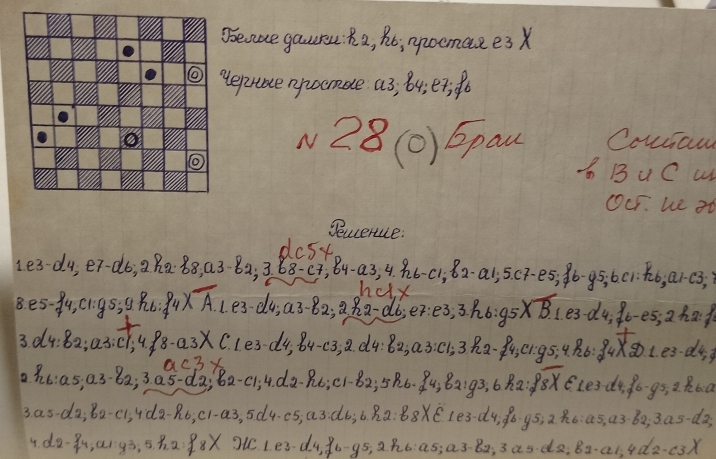 Белые дамки: h2; h6; простая e3 X
Черные простые: a3; b4; e7; f6
N 28 (0) Брак
в В и С
Ост. не
Решение:
dc5x
1.e3-d4, e7-d6; 2.h2:b8, a3-b2; 3.b8-c7, b4-a3, 4.h6-c1, b2-a1; 5.c7-e5; f6-g5; 6.c1:h6, a1-c3;
hc1x
8.e5-f4, c1:g5; 9.h6:f4X А.1.e3-d4; a3-b2; 2.h2-d6; e7:e3; 3.h6:g5X В.1.e3-d4, f6-e5; 2.h2:
3.d4:b2; a3:c1; 4.f8-a3X С.1.e3-d4; b4-c3; 2.d4:b2; a3:c1, 3.h2-f4, c1:g5; 4.h6:f4X D.1.e3-d4;
ac3x
2.h6:a5, a3-b2; 3.a5-d2; b2-c1; 4.d2-h6; c1-b2; 5.h6-f4, b2:g3, 6.h2:f8X Е.1.e3-d4, f6-g5, 2.h6:a
3.a5-d2, b2-c1, 4.d2-h6, c1-a3, 5.d4-c5, a3:d6; 6.h2:b8X Ё.1.e3-d4; f6-g5; 2.h6:a5, a3-b2, 3.a5-d2,
4.d2-f4, a1:g3, 5.h2:f8X Ж.1.e3-d4, f6-g5; 2.h6:a5; a3-b2; 3.a5-d2, b2-a1, 4.d2-c3X